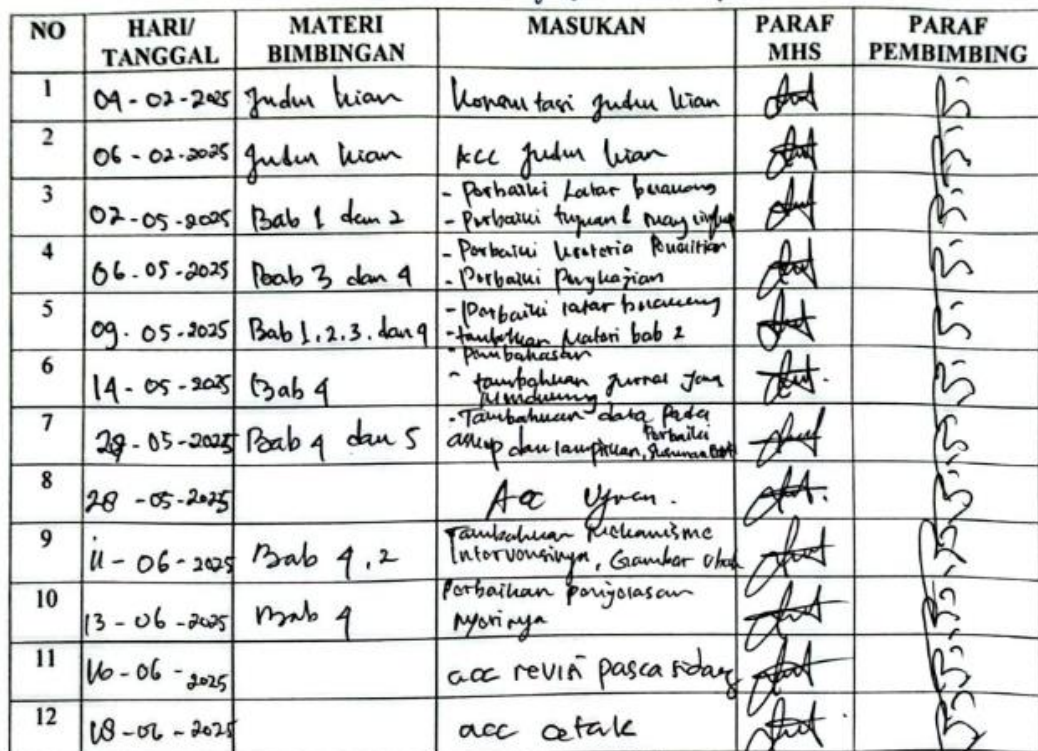 NO HARI/ TANGGAL MATERI BIMBINGAN MASUKAN PARAF MHS PARAF PEMBIMBING
1 04-02-2025 Judul kian Konsultasi Judul kian
2 06-02-2025 Judul kian Acc Judul kian
3 02-05-2025 Bab 1 dan 2 - Perbaiki Latar belakang
- Perbaiki tujuan & ruang lingkup
4 06.05-2025 Bab 3 dan 4 - Perbaiki kriteria Penelitian
- Perbaiki Pengkajian
5 09.05-2025 Bab 1.2.3.dan 4 - Perbaiki latar belakang
- tambahkan Materi bab 2
6 14-05-2025 Bab 4 - Pembahasan
- tambahkan jurnal yang
mendukung
7 28-05-2025 Bab 4 dan 5 - Tambahkan data pada
askep dan lampirkan, Perbaiki
8 28-05-2025 Acc Ujian.
9 11-06-2025 Bab 4,2 Tambahkan Mekanisme
Intervensinya, Gambar
10 13-06-2025 Bab 4 Perbaikan penjelasan
Nyerinya
11 16-06-2025 acc revisi pasca sidang
12 18-06-2025 acc cetak